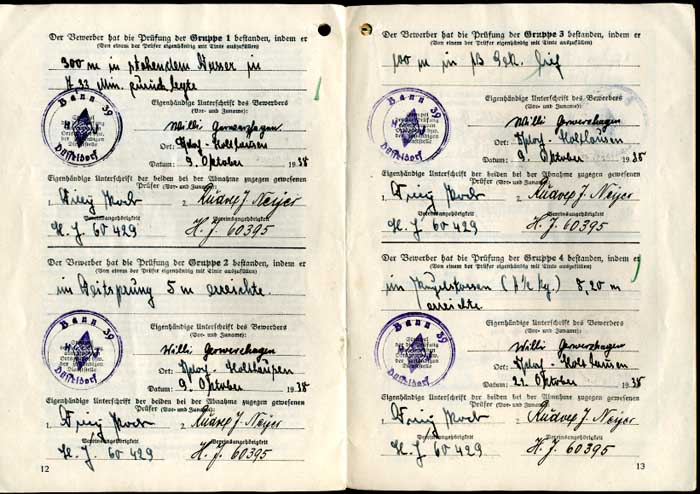 Der Bewerber hat die Prüfung der Gruppe 1 bestanden, indem er
(Von einem der Prüfer eigenhändig mit Tinte auszufüllen)
300 m in stehendem Wasser in
Min. zurück legte
Eigenhändige Unterschrift des Bewerbers
(Vor- und Zuname):
Bann 39
Düsseldorf
Willi
Ort: Holthausen
Datum: 9. Oktober 1938
Eigenhändige Unterschrift der beiden bei der Abnahme zugegen gewesenen
Prüfer (Vor- und Zuname):
1. 2. J. Neijer
Vereinszugehörigkeit Vereinszugehörigkeit
H. J. 60 429 H. J. 60395
Der Bewerber hat die Prüfung der Gruppe 2 bestanden, indem er
(Von einem der Prüfer eigenhändig mit Tinte auszufüllen)
im Weitsprung 5 m erreichte.
Eigenhändige Unterschrift des Bewerbers
(Vor- und Zuname):
Bann 39
Düsseldorf
Willi
Ort: Holthausen
Datum: 9. Oktober 1938
Eigenhändige Unterschrift der beiden bei der Abnahme zugegen gewesenen
Prüfer (Vor- und Zuname):
1. 2. J. Neijer
Vereinszugehörigkeit
H. J. 60 429 H. J. 60395
12
Der Bewerber hat die Prüfung der Gruppe 3 bestanden, indem er
(Von einem der Prüfer eigenhändig mit Tinte auszufüllen)
100 m in 13 Sek. lief
Eigenhändige Unterschrift des Bewerbers
(Vor- und Zuname):
Bann 39
Düsseldorf
Willi
Ort: Holthausen
Datum: 9. Oktober 1938
Eigenhändige Unterschrift der beiden bei der Abnahme zugegen gewesenen
Prüfer (Vor- und Zuname):
1. 2. J. Neijer
Vereinszugehörigkeit Vereinszugehörigkeit
H. J. 60 429 H. J. 60395
Der Bewerber hat die Prüfung der Gruppe 4 bestanden, indem er
(Von einem der Prüfer eigenhändig mit Tinte auszufüllen)
im Kugelstossen 8,20 m
erreichte.
Eigenhändige Unterschrift des Bewerbers
(Vor- und Zuname):
Bann 39
Düsseldorf
Willi
Ort: Holthausen
Datum: 21. Oktober 1938
Eigenhändige Unterschrift der beiden bei der Abnahme zugegen gewesenen
Prüfer (Vor- und Zuname):
1. 2. J. Neijer
Vereinszugehörigkeit
H. J. 60 429 H. J. 60395
13